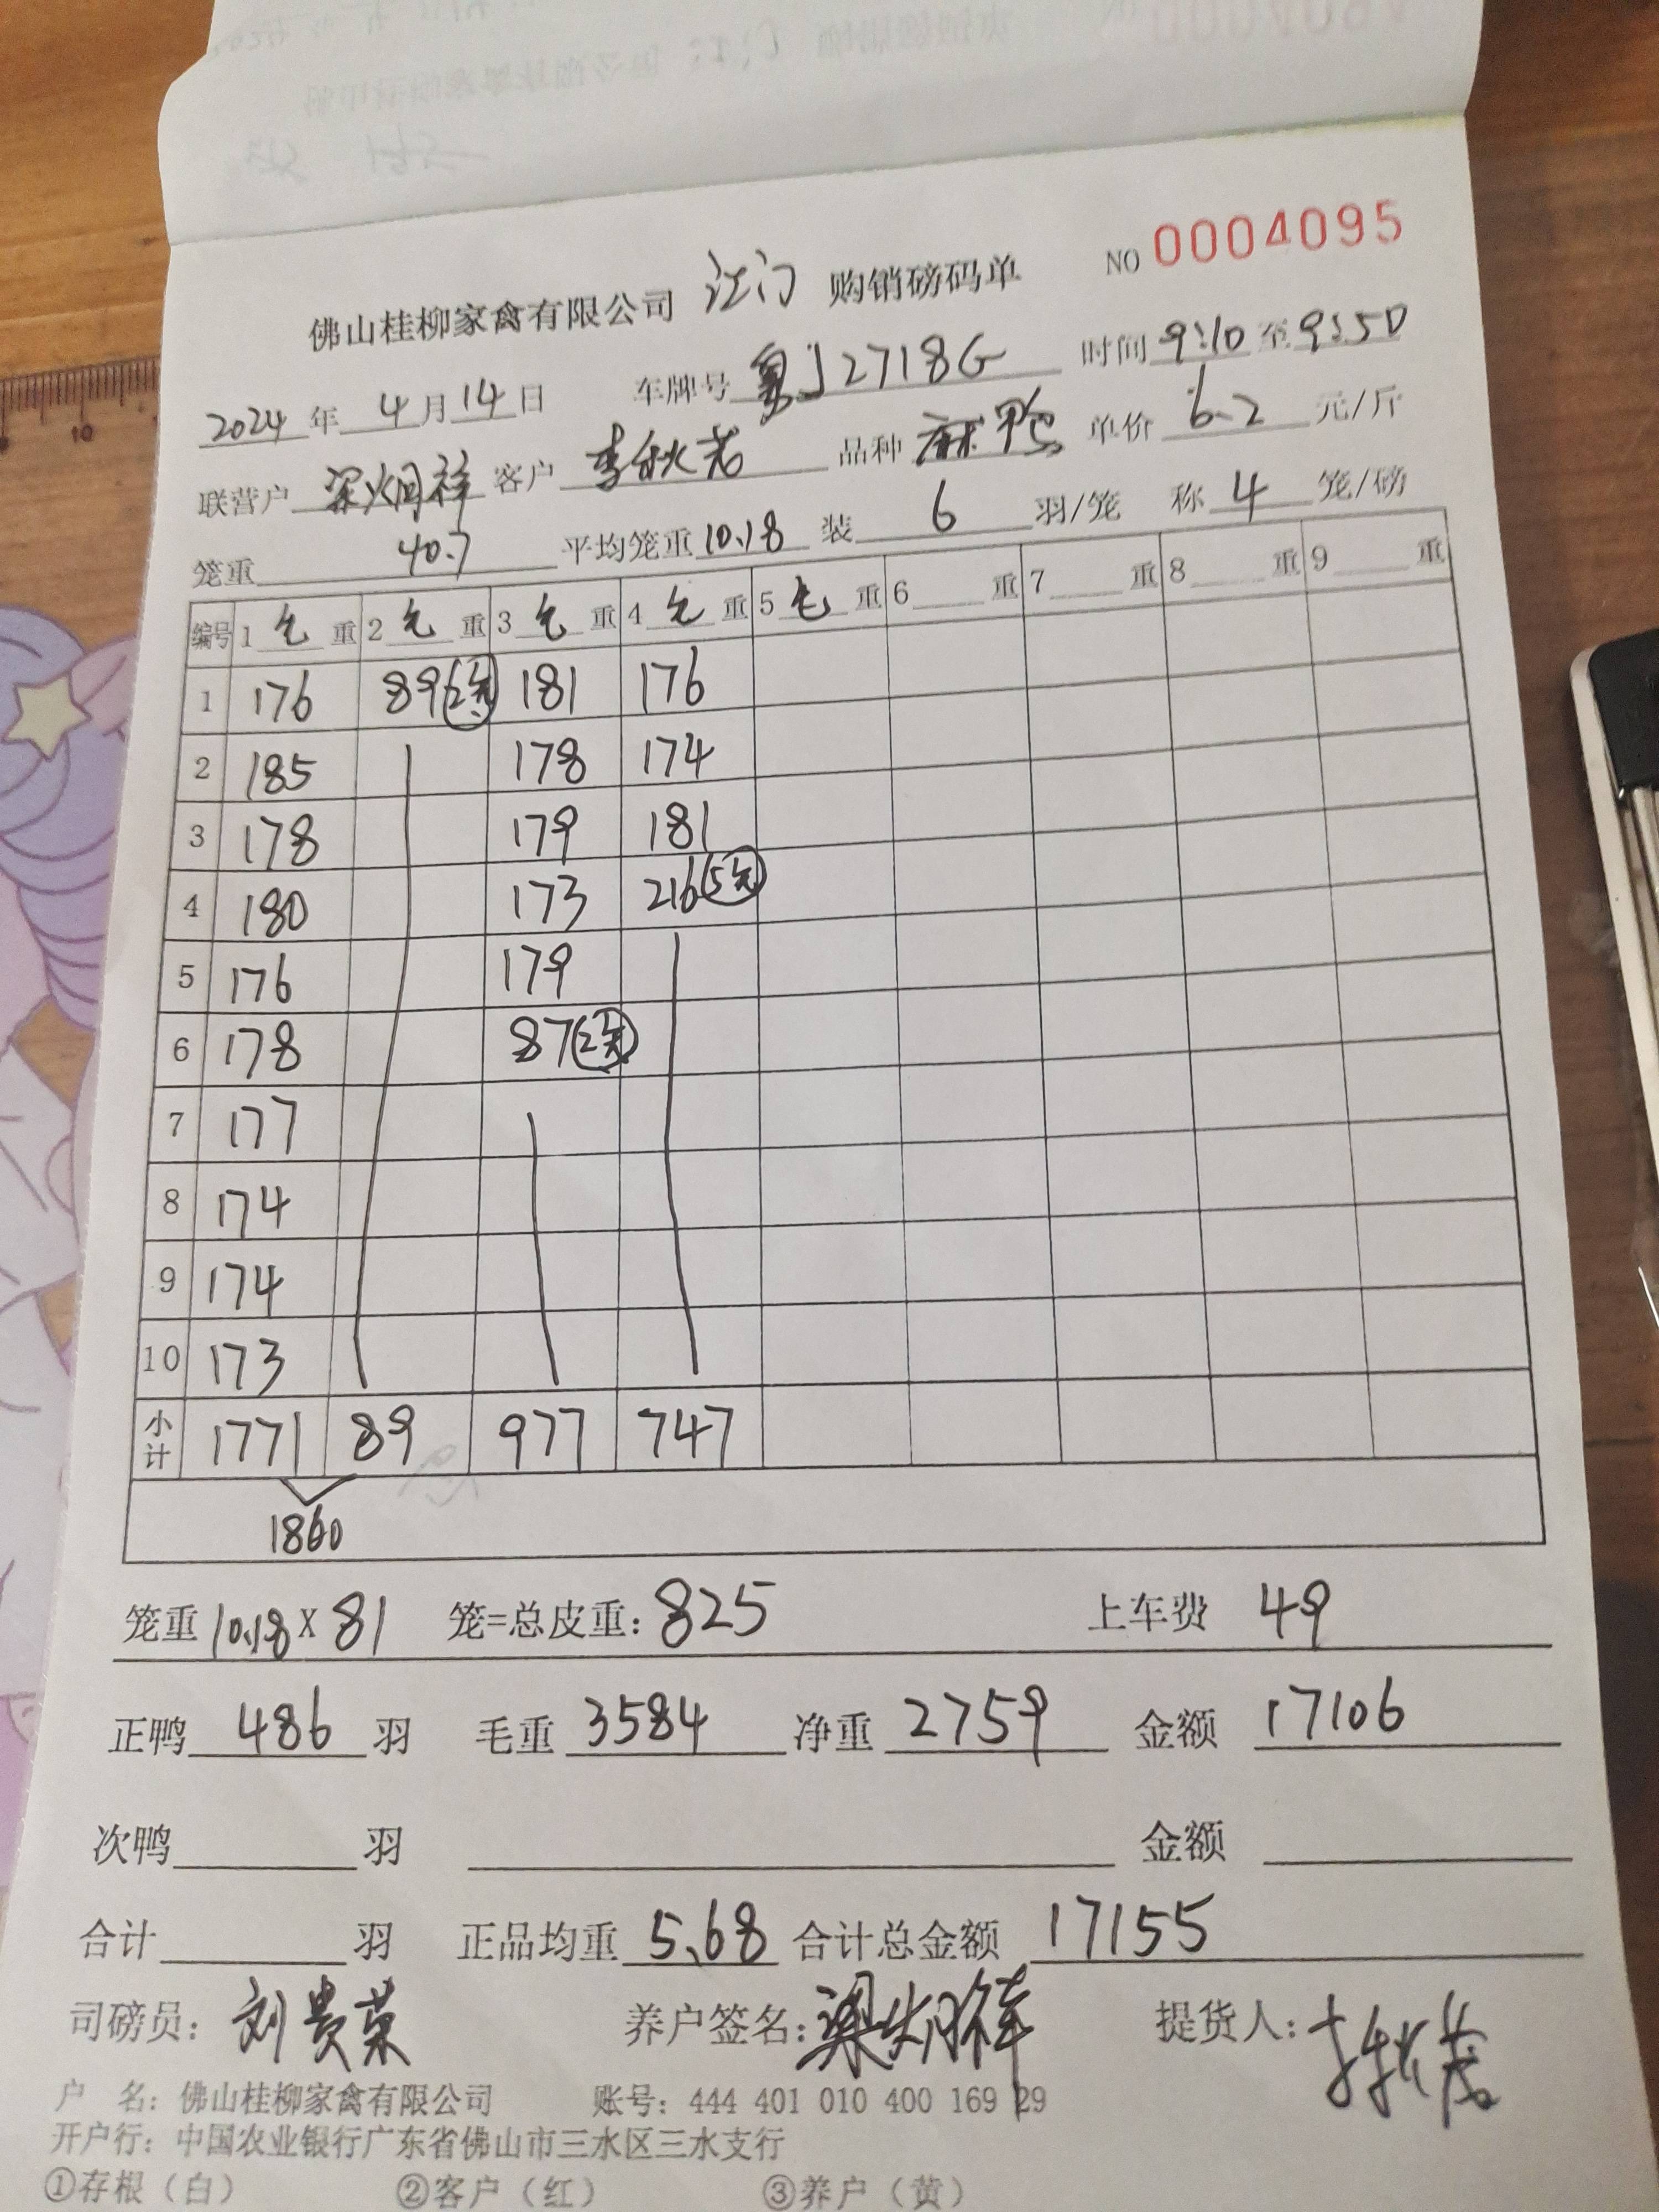 佛山桂柳家禽有限公司 江门 购销磅码单 NO 0004095
2024 年 4 月 14 日 车牌号 粤J2718G 时间 9:10 至 9:50
联营户 梁炳祥 客户 李秋茂 品种 麻鸭 单价 6.2 元/斤
笼重 40.7 平均笼重 10.18 装 6 羽/笼 称 4 笼/磅
编号 1 毛 重 2 毛 重 3 毛 重 4 毛 重 5 毛 重 6 重 7 重 8 重 9 重
1 176 89(2笼) 181 176
2 185 178 174
3 178 179 181
4 180 173 216(5笼)
5 176 179
6 178 87(2笼)
7 177
8 174
9 174
10 173
小计 1771 89 977 747
1860
笼重 10.18 X 81 笼=总皮重: 825 上车费 49
正鸭 486 羽 毛重 3584 净重 2759 金额 17106
次鸭 羽 金额
合计 羽 正品均重 5.68 合计总金额 17155
司磅员: 刘贵荣 养户签名: 梁炳祥 提货人:
户 名: 佛山桂柳家禽有限公司 账号: 444 401 010 400 169 29
开户行: 中国农业银行广东省佛山市三水区三水支行
①存根（白） ②客户（红） ③养户（黄）